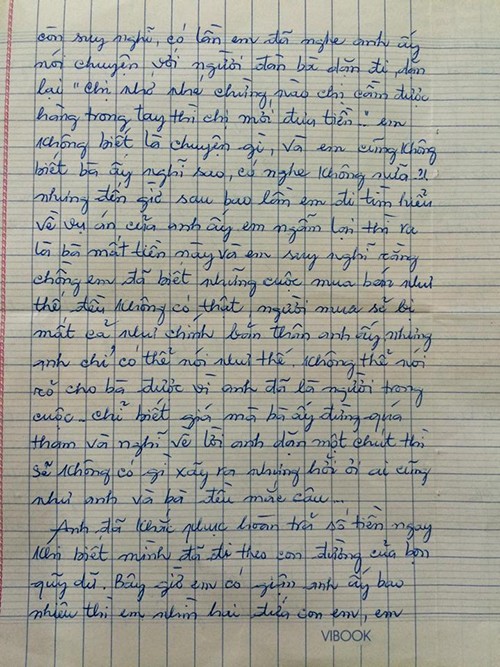 còn suy nghĩ, có lần em đã nghe anh ấy
nói chuyện với người đàn bà dặn đi dặn
lại "chị nhớ nhé chừng nào chị cầm được
hàng trong tay thì chị mới đưa tiền.." em
không biết là chuyện gì, và em cũng không
biết bà ấy nghĩ sao, có nghe không nữa ?!
nhưng đến giờ sau bao lần em đi tìm hiểu
về vụ án của anh ấy em ngẫm lại thì ra
là bà mất tiền này và em suy nghĩ rằng
chồng em đã biết những cuộc mua bán như
thế đều không có thật, người mua sẽ bị
mất cả như chính bản thân anh ấy nhưng
anh chỉ có thể nói như thế. Không thể nói
rõ cho bà được vì anh đã là người trong
cuộc.. chỉ biết giá mà bà ấy đừng quá
tham và nghĩ về lời anh dặn một chút thì
sẽ không có gì xảy ra nhưng hỡi ơi ai cũng
như anh và bà đều mắc câu...
Anh đã khắc phục hoàn trả số tiền ngay
khi biết mình đã đi theo con đường của bọn
quỹ dữ. Bây giờ em có giận anh ấy bao
nhiêu thì em nhìn hai đứa con em, em
VIBOOK